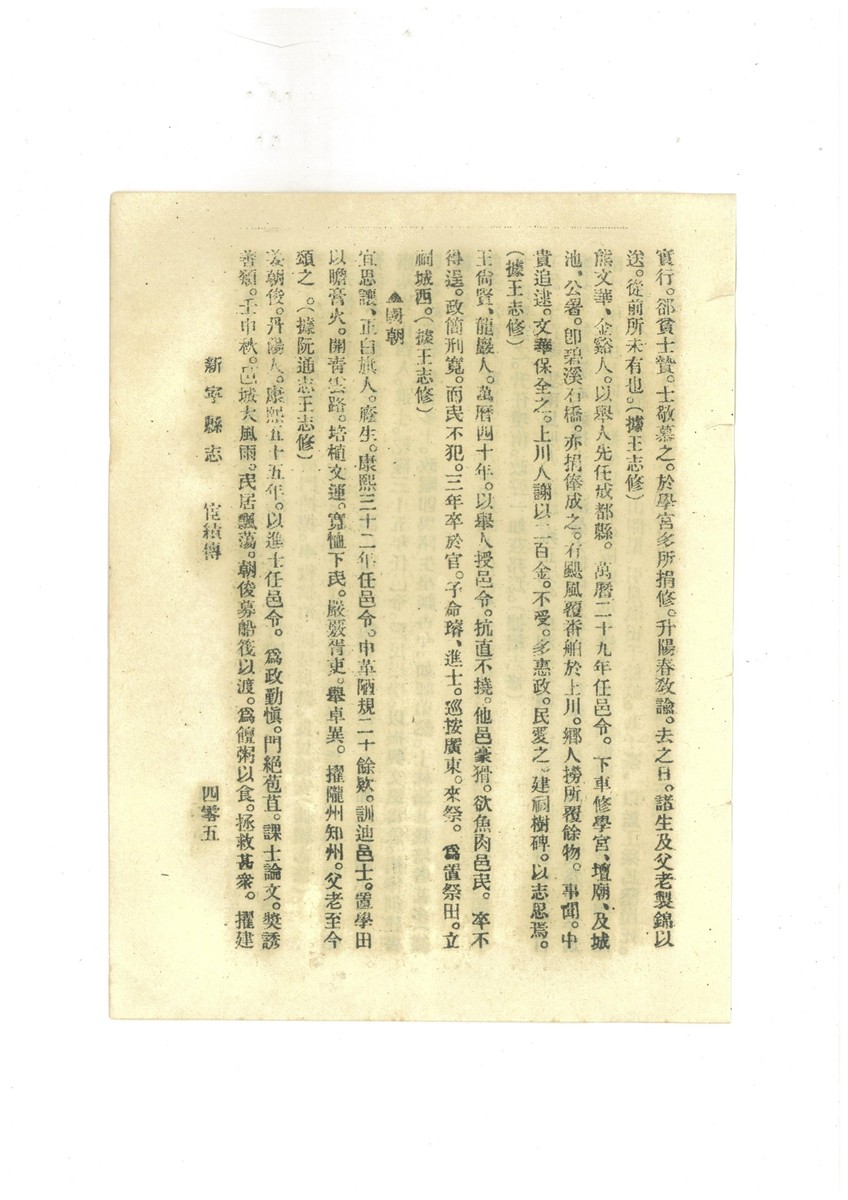 實行。卻貧士贄。士敬慕之。於學宮多所捐修。升陽春教諭。去之日。諸生及父老製錦以
送。從前所未有也。(據王志修)
熊文華、金谿人。以舉人先任成都縣。萬曆二十九年任邑令。下車修學宮、壇廟、及城
池、公署。卽碧溪石橋。亦捐俸成之。有颶風覆番舶於上川。鄉人撈所覆餘物。事聞。中
貴追逮。文華保全之。上川人謝以二百金。不受。多惠政。民愛之。建祠樹碑。以志思焉。
(據王志修)
王尙賢、龍巖人。萬曆四十年。以舉人授邑令。抗直不撓。他邑豪猾。欲魚肉邑民。卒不
得逞。政簡刑寬。而民不犯。三年卒於官。子命璿、進士。巡按廣東。來祭。爲置祭田。立
祠城西。(據王志修)
▲國朝
宜思讓、正白旗人。廕生。康熙三十二年任邑令。申革陋規二十餘欵。訓迪邑士。置學田
以贍膏火。開靑雲路。培植文運。寬恤下民。嚴覈胥吏。舉卓異。擢隴州知州。父老至今
頌之。(據阮通志王志修)
姜朝俊。丹陽人。康熙五十五年。以進士任邑令。爲政勤愼。門絕苞苴。課士論文。奬誘
善類。壬申秋。邑城大風雨。民居飄蕩。朝俊募船筏以渡。爲饘粥以食。拯救甚衆。擢建
新寧縣志 宦績傳 四零五